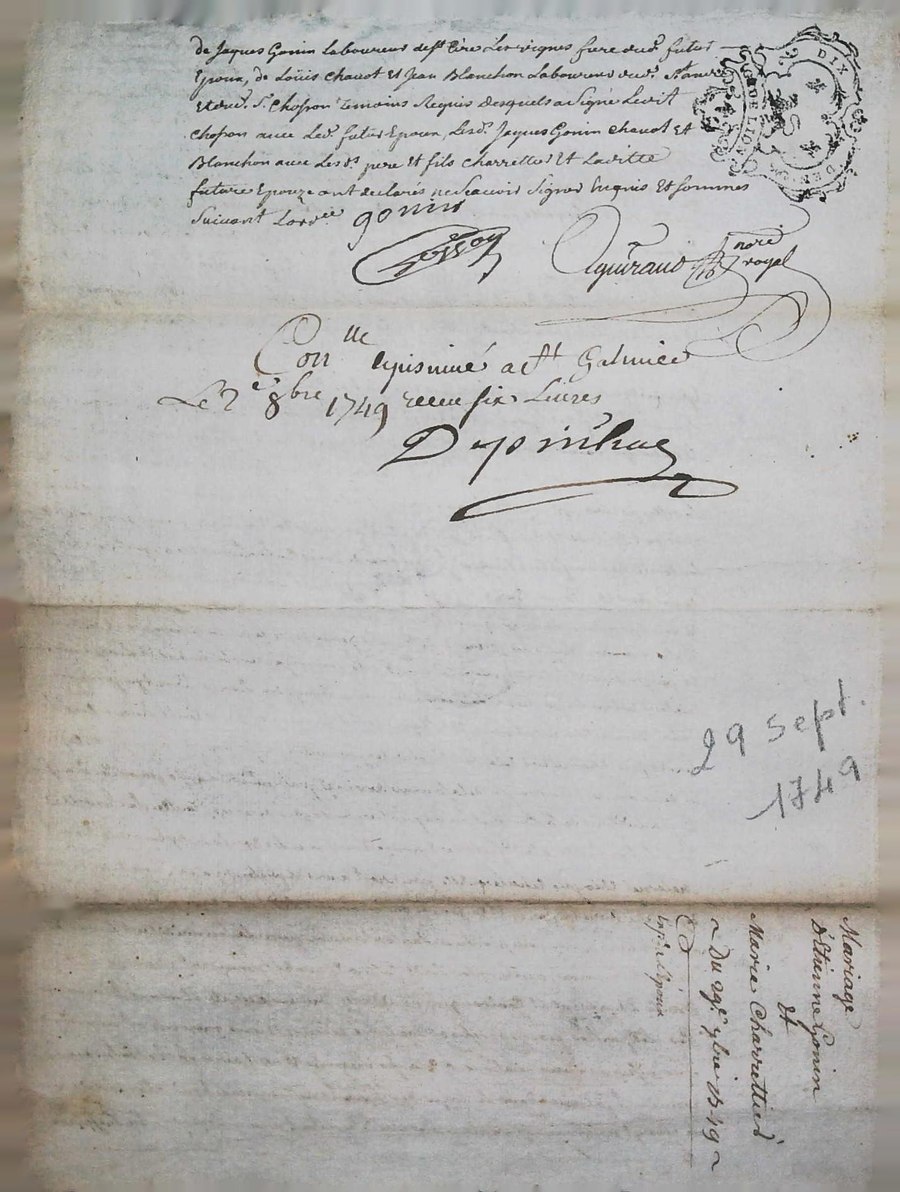 de Jaques Gonin Laboureur de St Cire Les vignes frere dud. futur
Epoux, de Loüis Chavot Et Jean Blanchon Laboureurs dud. St
Et dud. Sr. Chosson temoins Requis desquels a Signé Ledit
Chosson avec Led. futur Epoux, Lesd. Jaques Gonin Chavot Et
Blanchon avec Lesd. pere Et fils Charrettier Et Laditte
future Epouze ont declarés ne Scavoir Signer Enquis Et Sommes
Suivant Lordce
gonin
Chosson
Aguiraud nore royal
DIX
DE LION
DEN
Conlle Et insinué a St Galmier
Le 2e 8bre 1749 receu six Livres
Depinhac
29 Sept.
1749
Mariage
D'Etienne Gonin
Et
Marie Charrettier
Du 29e. 7bre 1749